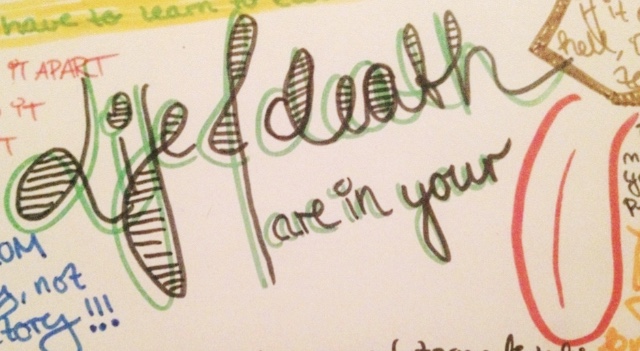 have to learn to
IT APART
IT
Life & death
are in your
not
tory!!!
hell,